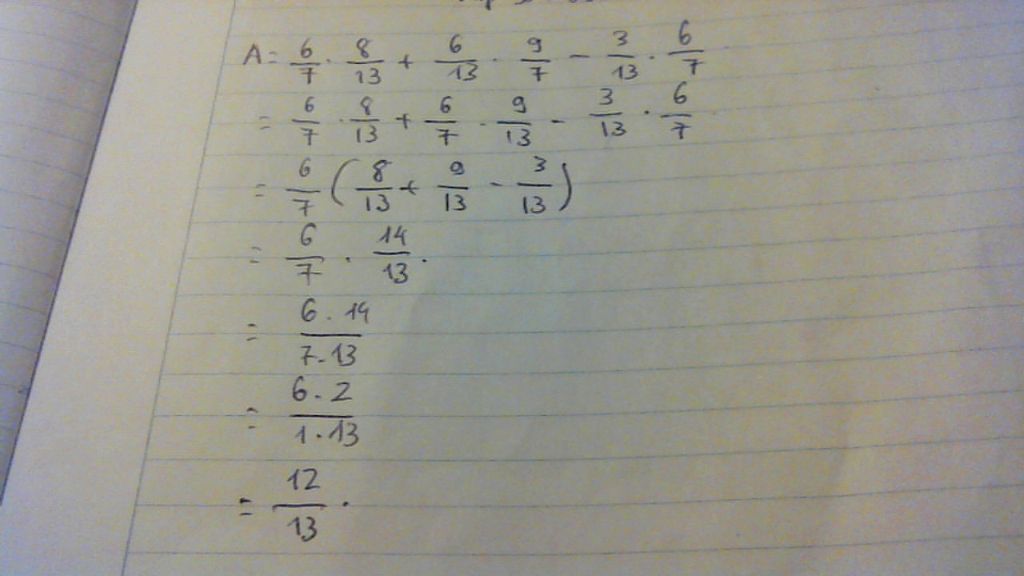 A = 6/7 · 8/13 + 6/13 · 9/7 - 3/13 · 6/7
= 6/7 · 8/13 + 6/7 · 9/13 - 3/13 · 6/7
= 6/7 ( 8/13 + 9/13 - 3/13 )
= 6/7 · 14/13 .
= 6 . 14 / 7 . 13
= 6 . 2 / 1 . 13
= 12/13 .